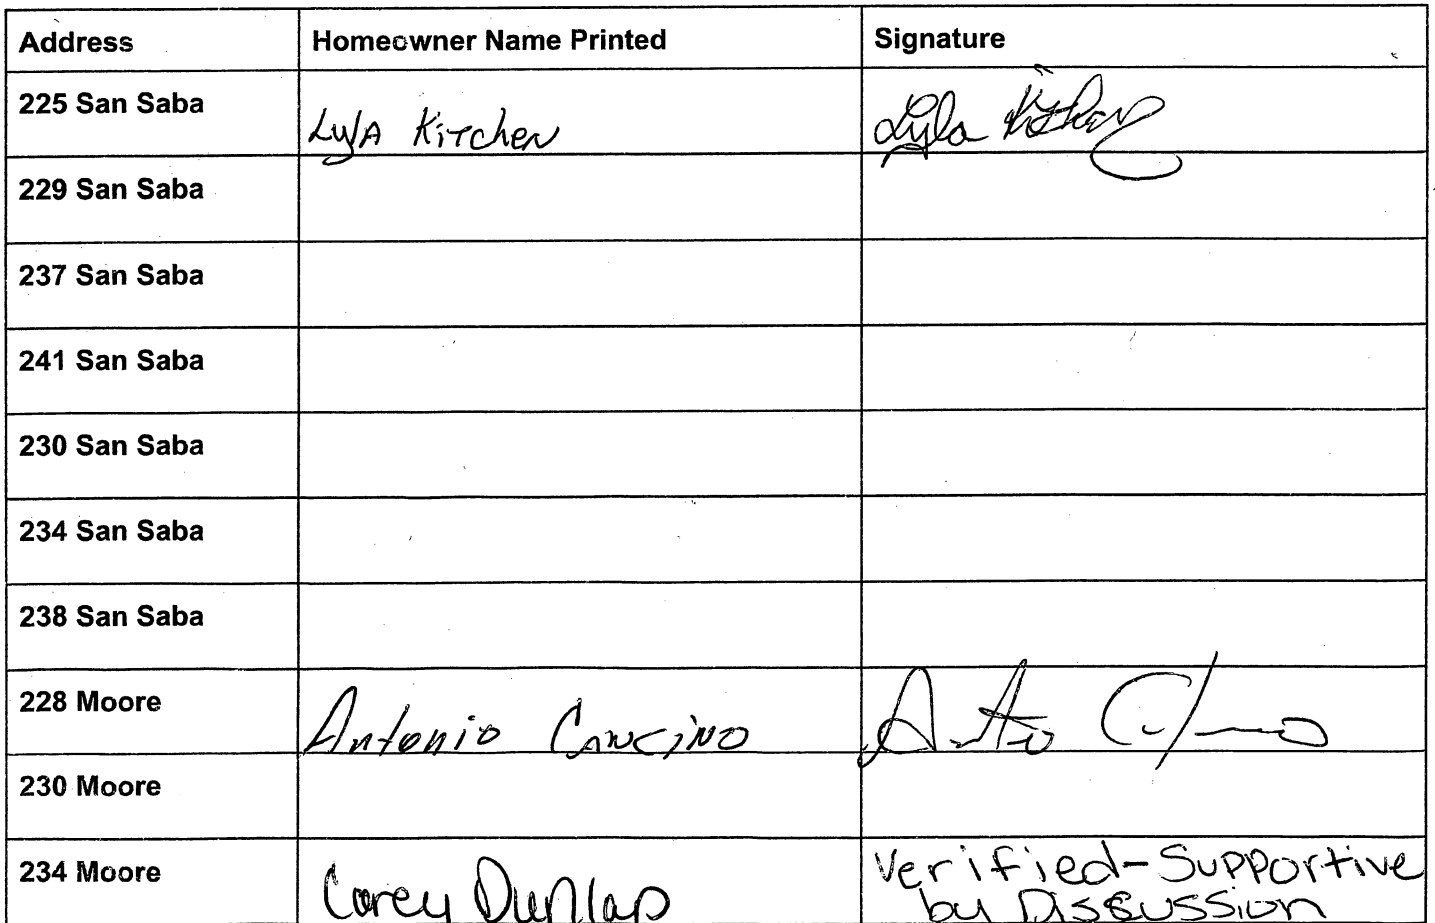 Address Homeowner Name Printed Signature
225 San Saba Lyla Kitchen Lyla Kitchen
229 San Saba
237 San Saba
241 San Saba
230 San Saba
234 San Saba
238 San Saba
228 Moore Antonio Cancino
230 Moore
234 Moore Corey Dunlap Verified-Supportive
by Discussion